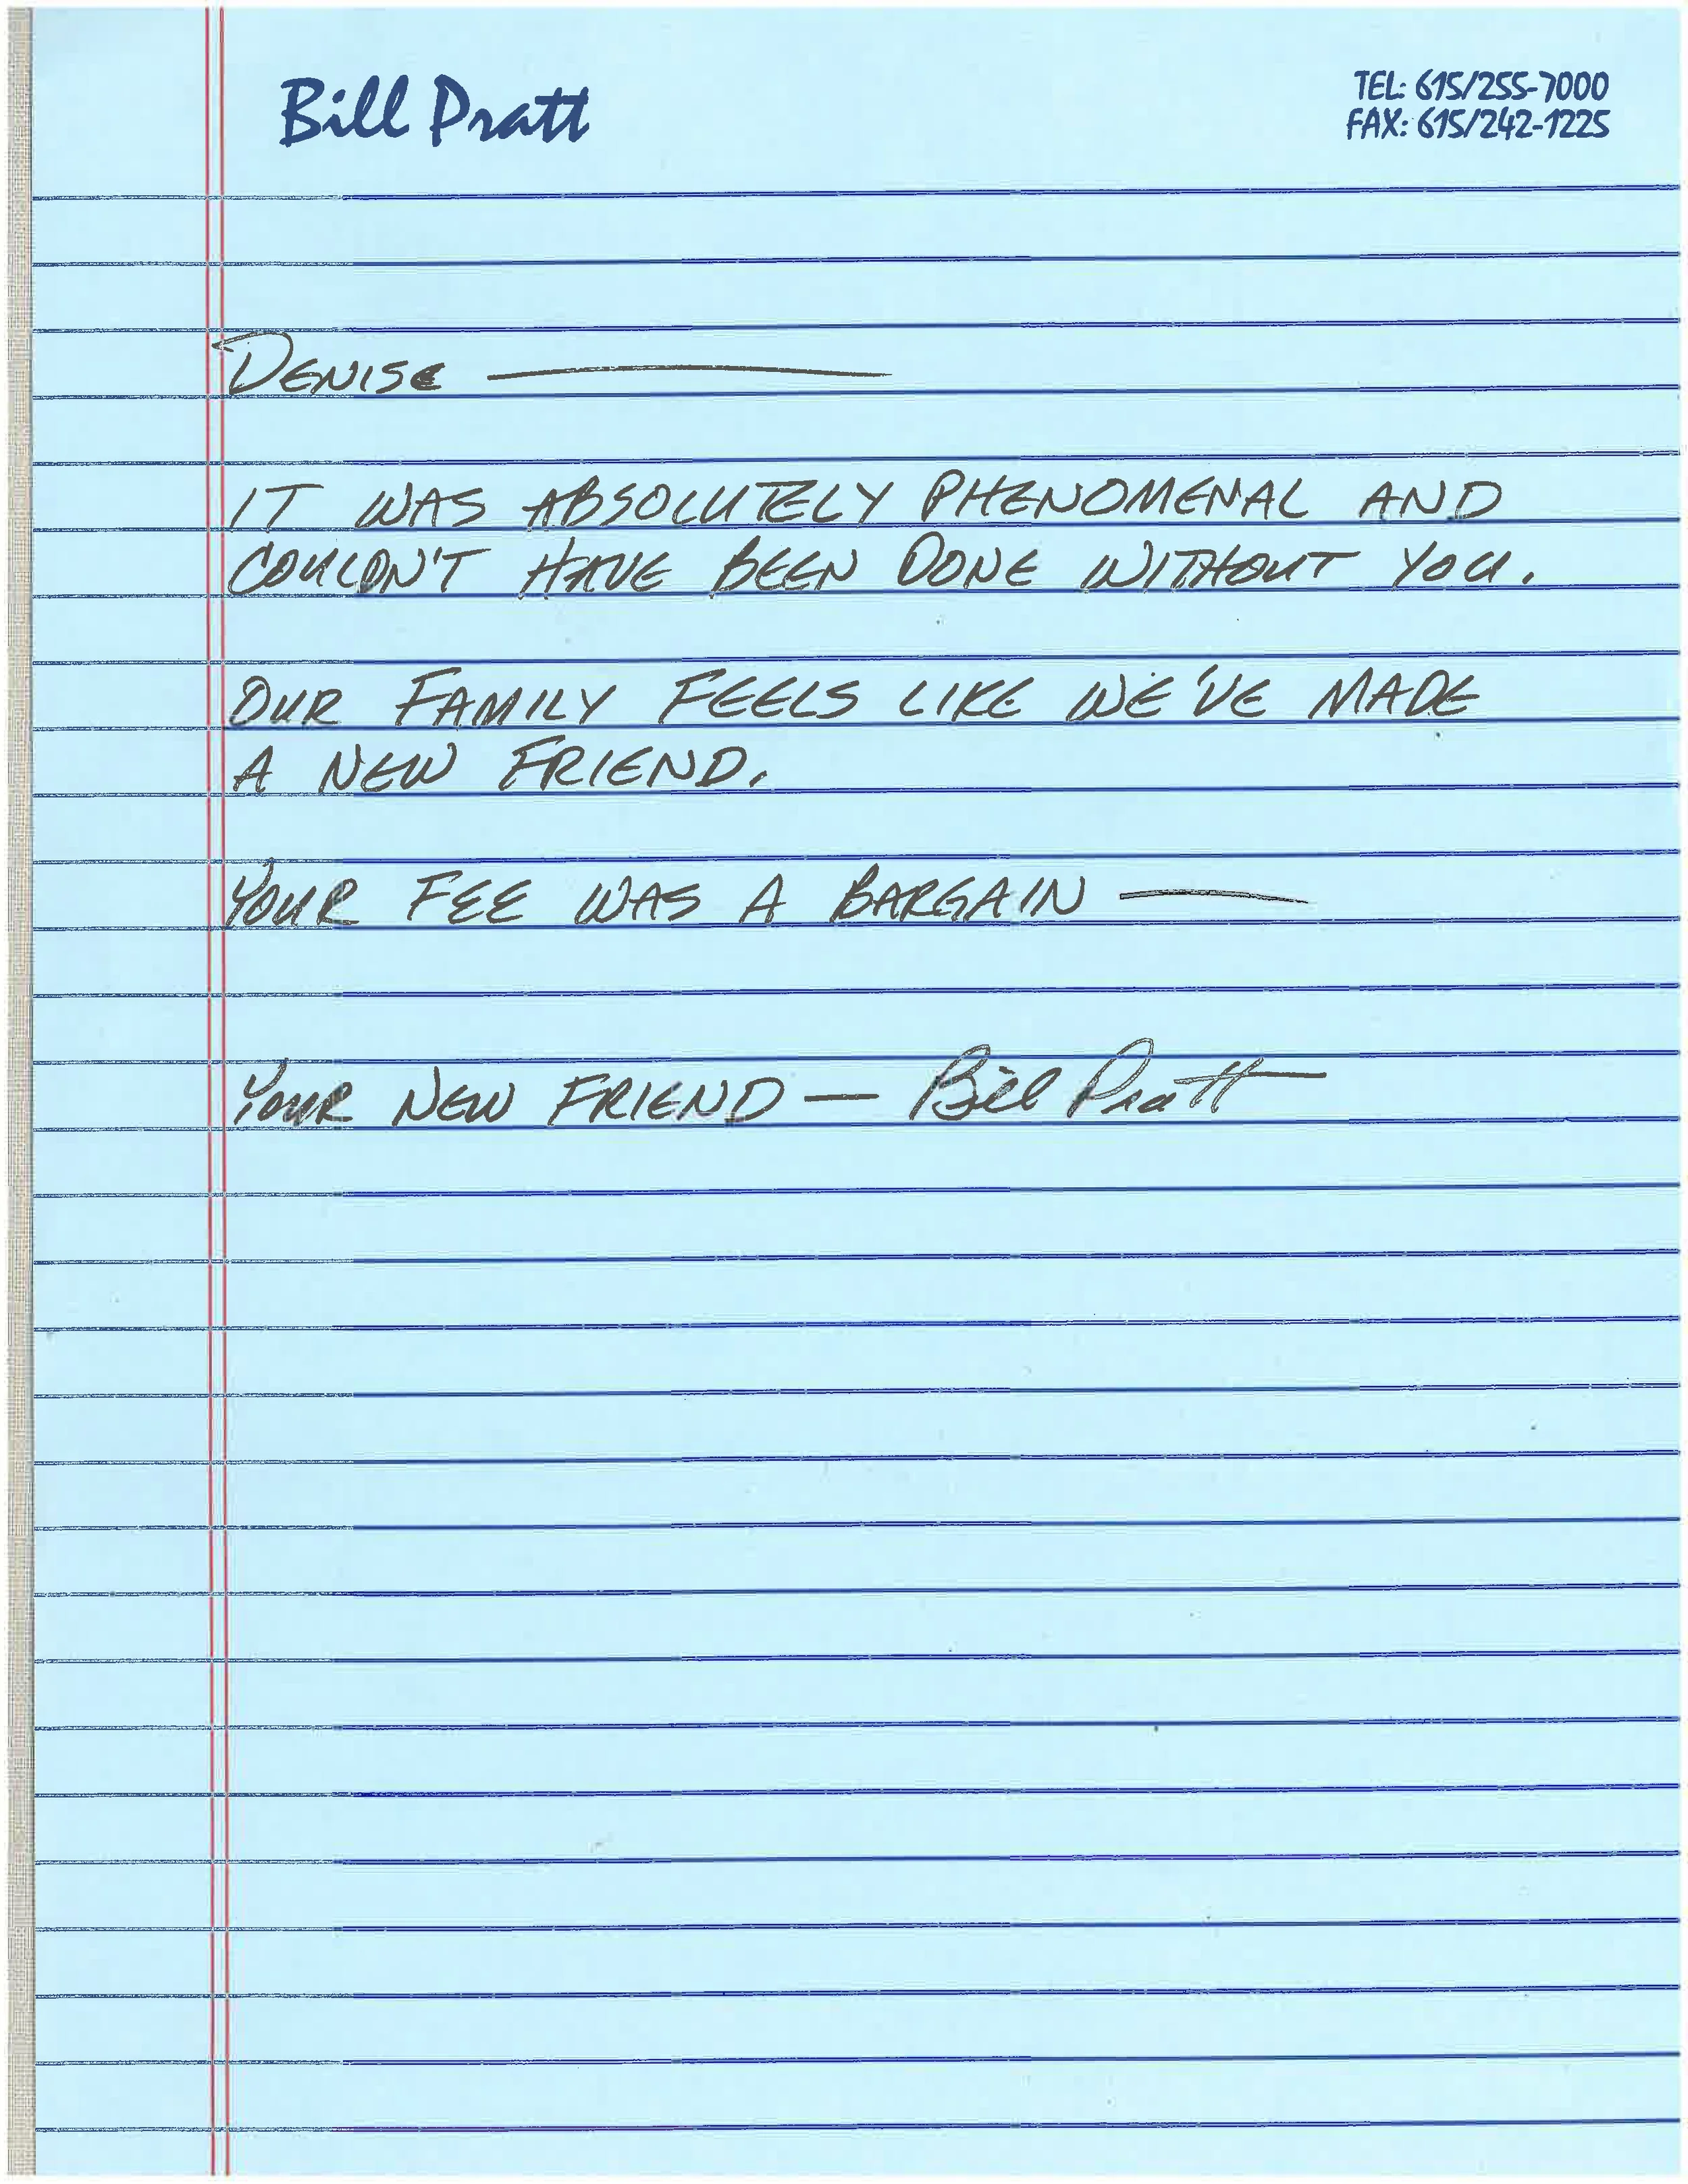 Bill Pratt
TEL: 615/255-7000
FAX: 615/242-1225
DENISE —
IT WAS ABSOLUTELY PHENOMENAL AND
COULDN'T HAVE BEEN DONE WITHOUT YOU.
OUR FAMILY FEELS LIKE WE'VE MADE
A NEW FRIEND.
YOUR FEE WAS A BARGAIN —
YOUR NEW FRIEND — Bill Pratt